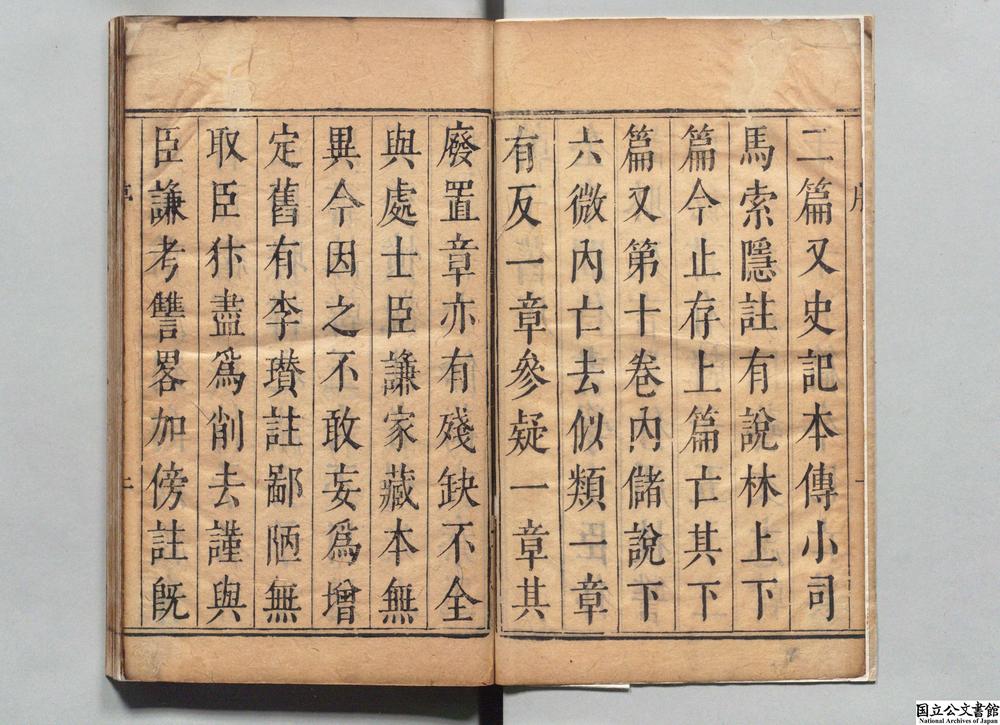 二篇又史記本傳小司
馬索隱註有說林上下
篇今止存上篇亡其下
篇又第十卷內儲說下
六微內亡去似類一章
有反一章參疑一章其
廢置章亦有殘缺不全
與處士臣謙家藏本無
異今因之不敢妄爲增
定舊有李瓚註鄙陋無
取臣犿盡爲削去謹與
臣謙考讐畧加傍註旣
国立公文書館
National Archives of Japan